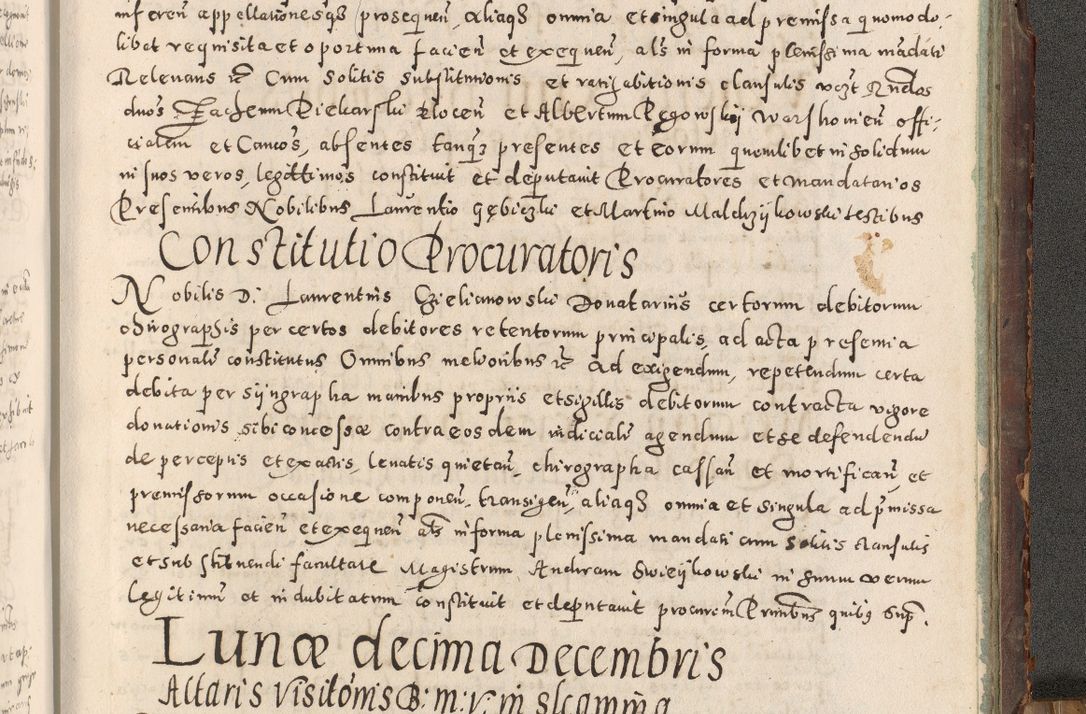 inferen̄ appellationesqꝫ prosequen̄, aliaqꝫ omnia et singula ad premissa quomodo-
libet requisita et oportuna facien̄ et exequen̄, als in forma plenissima mādati
Relevans &c̄ Cum solitis substitutionis et ratihabitionis clausulis vczt Rn̄dos
duos Zacheum Piekarski Klocen̄ et Albertum Ręgowskij Warshovien̄ offi-
cialem et Canc̄os, absentes tanqꝫ presentes et eorum quemlibet in solidum
in suos veros, legittimos constituit et deputavit Procuratores et mandatarios
Presentibus Nobilibus Laurentio Gębiczki et Martino Malchzijkowski testibus
Constitutio Procuratoris
Nobilis D: Laurentius Czielianowski Donatarius certorum debitorum
chirographis per certos debitores retentorum principalis, ad acta presentia
personalr̄ constitutus Omnibus melioribus &c̄ ad exigendum, repetendum certa
debita per sijngrapha manibus propriis et sigillis debitorum contracta vigore
donationis sibi concessæ contra eosdem iudicialr̄ agendum et se defendendū
de perceptis et exactis, levatis quietan̄, chirographa cassan̄ et mortifican̄, et
premissorum occasione componen̄, transigen̄, aliaqꝫ omnia et singula ad pm̄issa
necessaria facien̄ et exequen̄ als in forma plenissima mandati cum solitis clausulis
et substituendi facultate Magistrum Andream Swieijkowski in suum verum
legitimū et indubitatum constituit et deputavit procurem̄ Pn̄tibus quibꝫ sup̄.
Lunæ decima Decembris
Altaris Visitōnis B: M: V: in